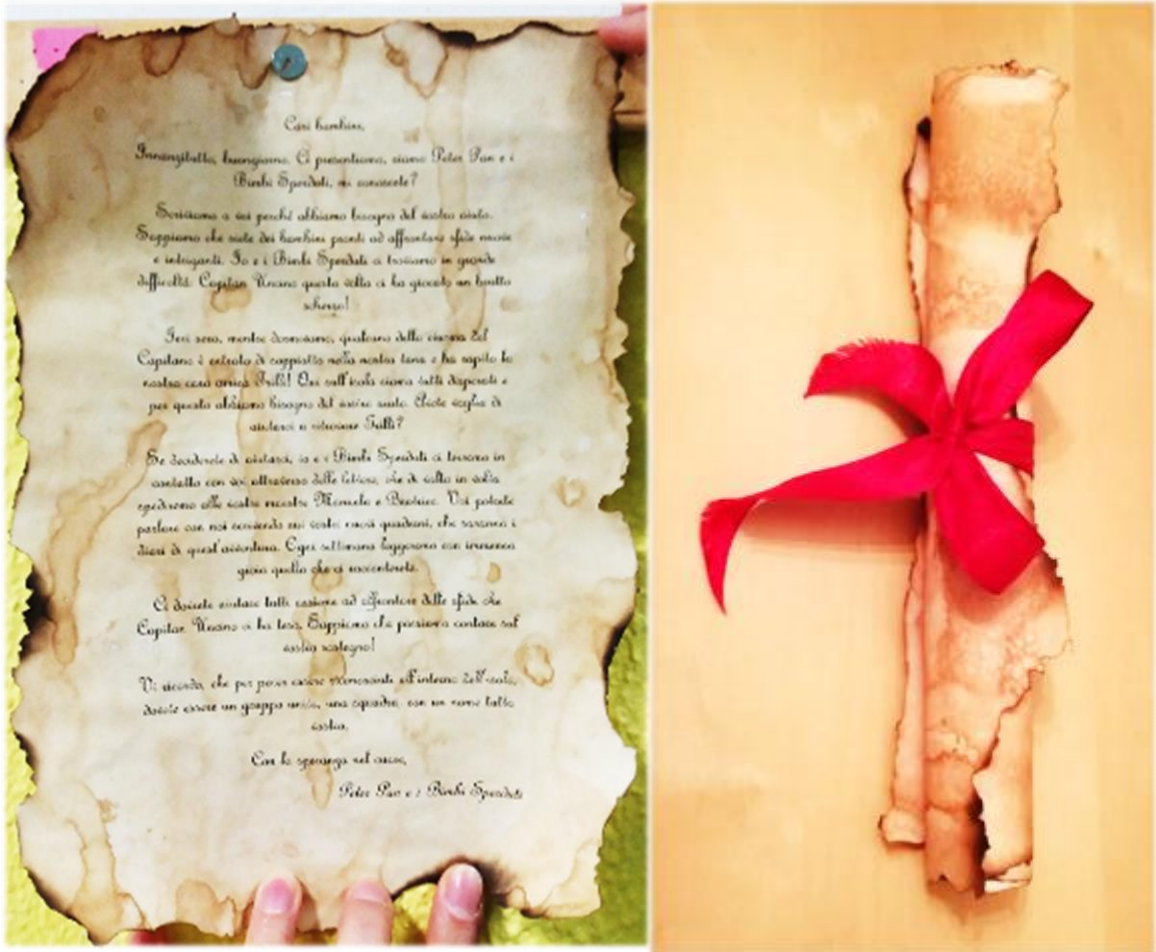 Cari bambini,
Innanzitutto, buongiorno. Ci presentiamo, siamo Peter Pan e i
Bimbi Sperduti, mi conoscete?
Scriviamo a voi perché abbiamo bisogno del vostro aiuto.
Sappiamo che siete dei bambini pronti ad affrontare sfide nuove
e intriganti. Io e i Bimbi Sperduti ci troviamo in grande
difficoltà: Capitan Uncino questa volta ci ha giocato un brutto
scherzo!
Ieri sera, mentre dormivamo, qualcuno della ciurma del
Capitano è entrato di soppiatto nella nostra tana e ha rapito la
nostra cara amica Trilli! Qui sull'isola siamo tutti disperati e
per questo abbiamo bisogno del vostro aiuto. Avete voglia di
aiutarci a ritrovare Trilli?
Se deciderete di aiutarci, io e i Bimbi Sperduti ci terremo in
contatto con voi attraverso delle lettere, che di volta in volta
spediremo alle vostre maestre Manuela e Beatrice. Voi potrete
parlare con noi scrivendo sui vostri nuovi quaderni, che saranno i
diari di quest'avventura. Ogni settimana leggeremo con immensa
gioia quello che ci racconterete.
Ci dovrete aiutare tutti assieme ad affrontare delle sfide che
Capitan Uncino ci ha teso. Sappiamo che possiamo contare sul
vostro sostegno!
Vi ricordo, che per poter essere riconosciuti all'interno dell'isola,
dovete essere un gruppo unito, una squadra con un nome tutto
vostro.
Con la speranza nel cuore,
Peter Pan e i Bimbi Sperduti